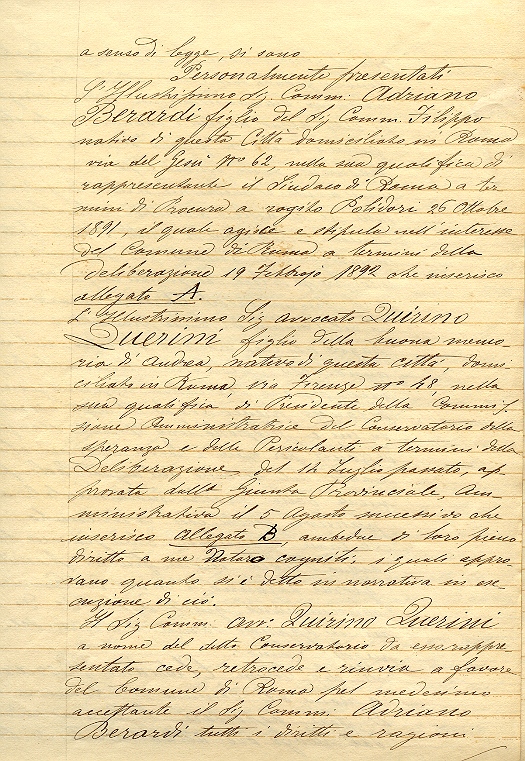 a senso di legge, si sono
Personalmente presentati
L'Illustrissimo Sig. Comm. Adriano
Berardi figlio del Sig Comm. Filippo
nativo di questa Città domiciliato in Roma
via del Gesù No 62, nella sua qualifica di
rappresentante il Sindaco di Roma a ter
mini di Procura a rogito Polidori 26 Ottobre
1891, il quale agisce e stipula nell'interesse
del Comune di Roma a termini della
deliberazione 19 Febbrajo 1892 che inserisco
allegato A.
L'Illustrissimo Sig avvocato Quirino
Querini figlio della buona memo-
ria di Andrea, nativo di questa città, domi
ciliato in Roma, via Firenze No 48, nella
sua qualifica di Presidente della Commis
sione Amministratrice del Conservatorio della
speranza e delle Pericolante a termini della
Deliberazione del 14 Luglio passato, ap
provata dalla Giunta Provinciale, Am-
ministrativa il 5 Agosto successivo che
inserisco allegato B, ambedue di loro pieno
diritto a me Notaro cogniti, i quali appro-
vano quanto si è detto in narrativa in ese-
cuzione di ciò.
Il Sig Comm. avv. Quirino Querini
a nome del detto Conservatorio da esso rappre-
sentato cede, retrocede e rinvia a favore
del Comune di Roma pel medesimo
accettante il Sig Comm. Adriano
Berardi tutti i diritti e ragioni